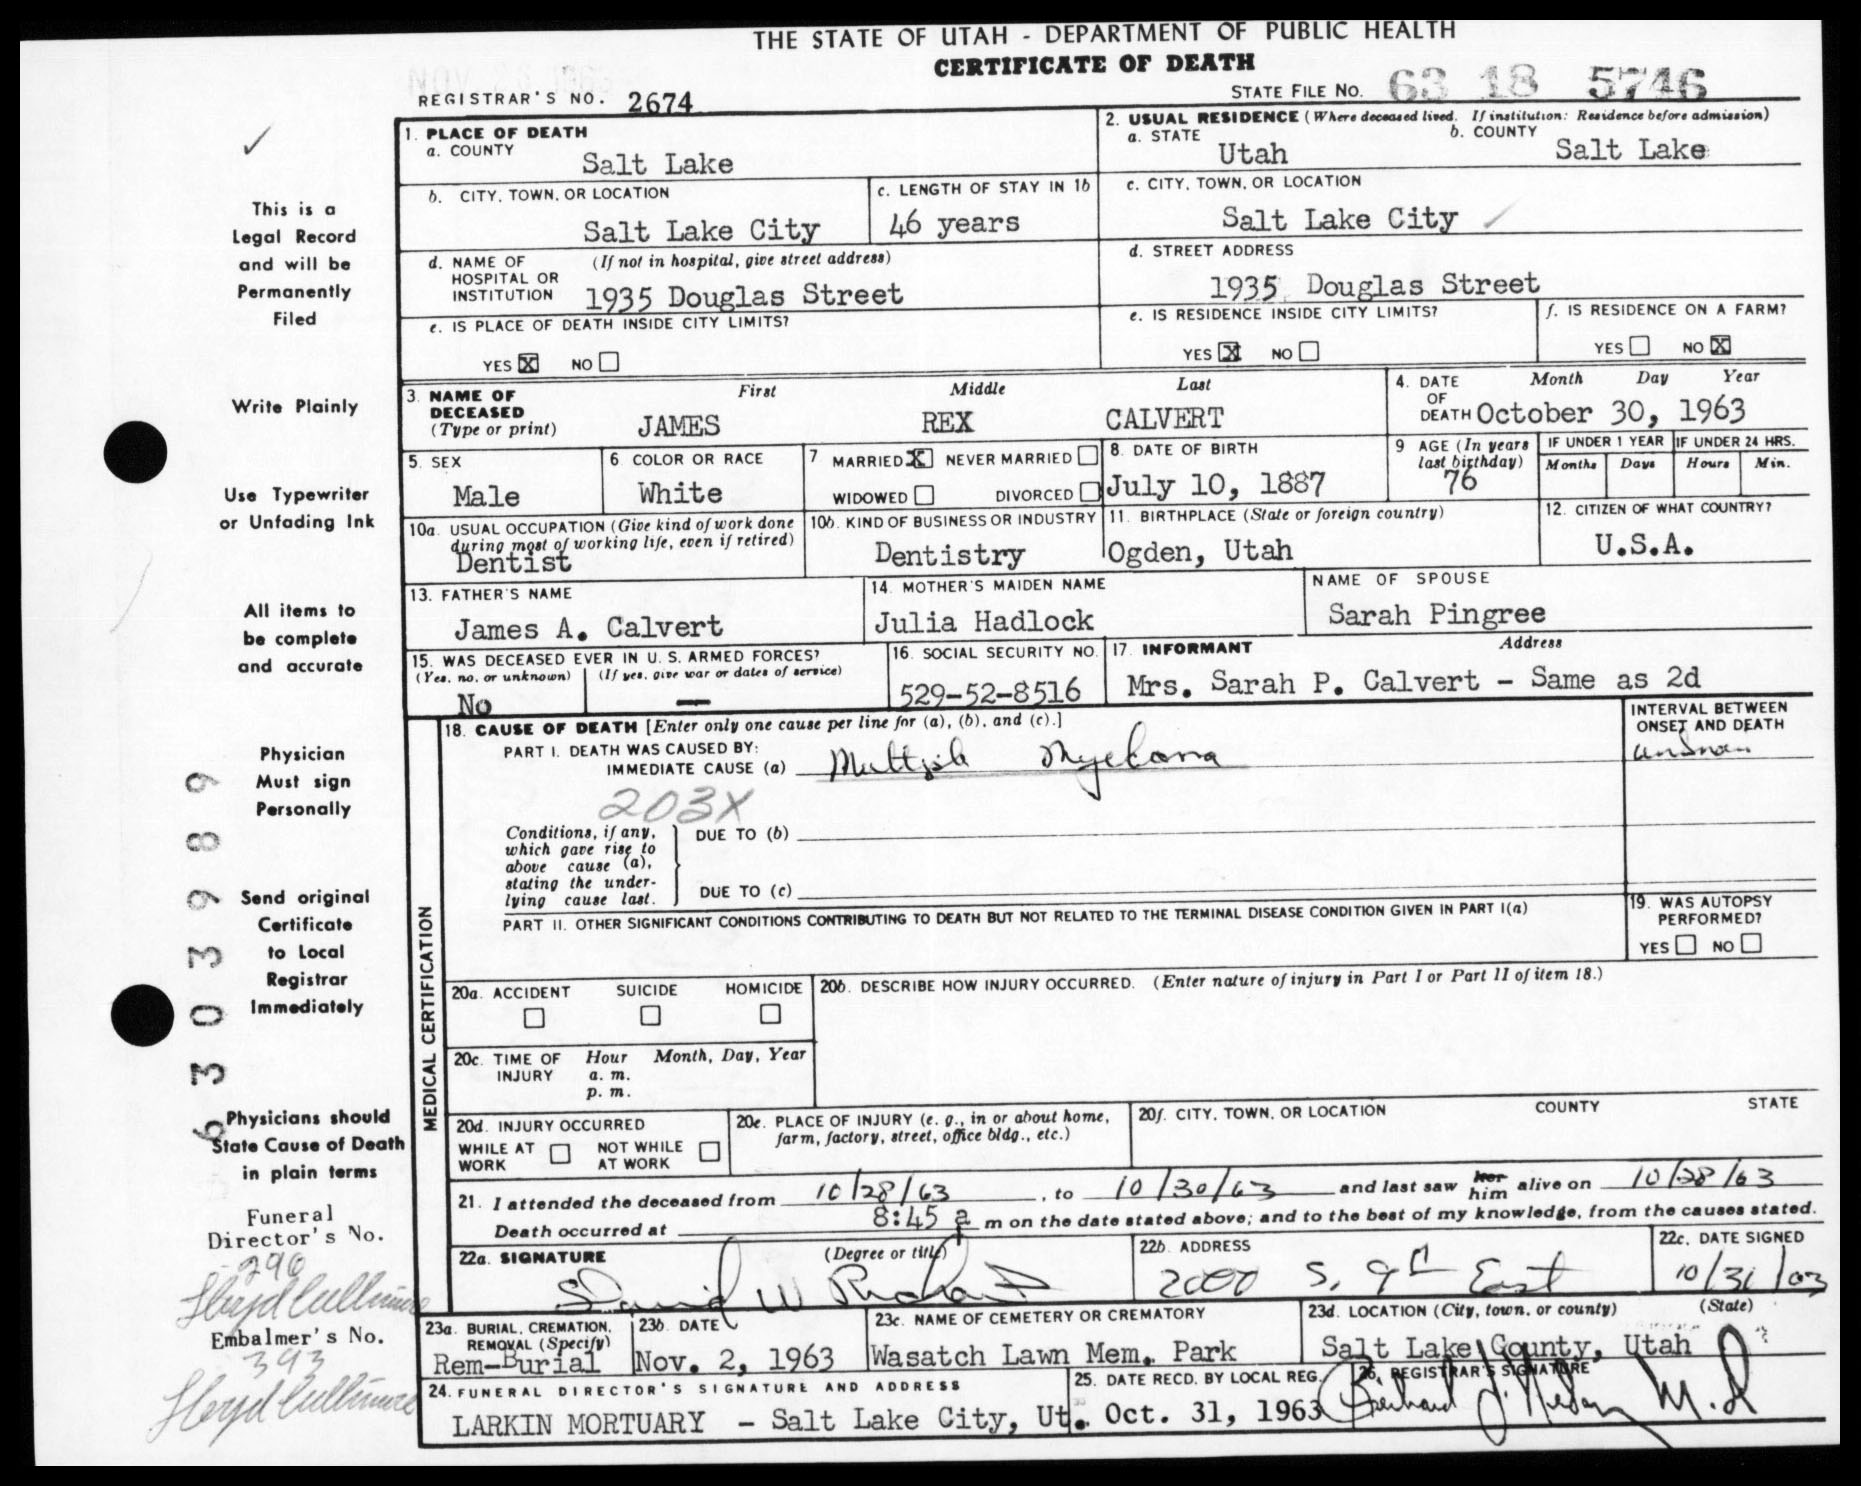 THE STATE OF UTAH - DEPARTMENT OF PUBLIC HEALTH
CERTIFICATE OF DEATH
REGISTRAR'S NO. 2674
STATE FILE NO. 63 18 5746
1. PLACE OF DEATH
a. COUNTY
Salt Lake
2. USUAL RESIDENCE (Where deceased lived. If institution: Residence before admission)
a. STATE
Utah
b. COUNTY
Salt Lake
b. CITY, TOWN, OR LOCATION
Salt Lake City
c. LENGTH OF STAY IN 1b
46 years
c. CITY, TOWN, OR LOCATION
Salt Lake City
d. NAME OF HOSPITAL OR INSTITUTION
(If not in hospital, give street address)
1935 Douglas Street
d. STREET ADDRESS
1935 Douglas Street
e. IS PLACE OF DEATH INSIDE CITY LIMITS?
YES X NO
e. IS RESIDENCE INSIDE CITY LIMITS?
YES X NO
f. IS RESIDENCE ON A FARM?
YES NO X
3. NAME OF DECEASED
(Type or print)
First Middle Last
JAMES REX CALVERT
4. DATE OF DEATH
Month Day Year
October 30, 1963
5. SEX
Male
6. COLOR OR RACE
White
7 MARRIED X NEVER MARRIED
WIDOWED DIVORCED
8. DATE OF BIRTH
July 10, 1887
9 AGE (In years last birthday)
76
IF UNDER 1 YEAR
Months Days
IF UNDER 24 HRS.
Hours Min.
10a. USUAL OCCUPATION (Give kind of work done during most of working life, even if retired)
Dentist
10b. KIND OF BUSINESS OR INDUSTRY
Dentistry
11. BIRTHPLACE (State or foreign country)
Ogden, Utah
12. CITIZEN OF WHAT COUNTRY?
U.S.A.
13. FATHER'S NAME
James A. Calvert
14. MOTHER'S MAIDEN NAME
Julia Hadlock
NAME OF SPOUSE
Sarah Pingree
15. WAS DECEASED EVER IN U. S. ARMED FORCES?
(Yes, no, or unknown) (If yes, give war or dates of service)
No —
16. SOCIAL SECURITY NO.
529-52-8516
17. INFORMANT Address
Mrs. Sarah P. Calvert - Same as 2d
MEDICAL CERTIFICATION
18. CAUSE OF DEATH [Enter only one cause per line for (a), (b), and (c).]
PART I. DEATH WAS CAUSED BY:
IMMEDIATE CAUSE (a) Multiple Myeloma
INTERVAL BETWEEN ONSET AND DEATH
203X
Conditions, if any, which gave rise to above cause (a), stating the underlying cause last.
DUE TO (b)
DUE TO (c)
PART II. OTHER SIGNIFICANT CONDITIONS CONTRIBUTING TO DEATH BUT NOT RELATED TO THE TERMINAL DISEASE CONDITION GIVEN IN PART I(a)
19. WAS AUTOPSY PERFORMED?
YES NO
20a. ACCIDENT SUICIDE HOMICIDE
20b. DESCRIBE HOW INJURY OCCURRED. (Enter nature of injury in Part I or Part II of item 18.)
20c. TIME OF INJURY
Hour Month, Day, Year
a. m.
p. m.
20d. INJURY OCCURRED
WHILE AT WORK NOT WHILE AT WORK
20e. PLACE OF INJURY (e. g., in or about home, farm, factory, street, office bldg., etc.)
20f. CITY, TOWN, OR LOCATION COUNTY STATE
21. I attended the deceased from 10/28/63, to 10/30/63 and last saw her him alive on 10/28/63
Death occurred at 8:45 a m on the date stated above; and to the best of my knowledge, from the causes stated.
22a. SIGNATURE (Degree or title)
David W
22b. ADDRESS
2000 S. 9th East
22c. DATE SIGNED
10/31/63
23a. BURIAL, CREMATION, REMOVAL (Specify)
Rem-Burial
23b. DATE
Nov. 2, 1963
23c. NAME OF CEMETERY OR CREMATORY
Wasatch Lawn Mem. Park
23d. LOCATION (City, town, or county) (State)
Salt Lake County, Utah
24. FUNERAL DIRECTOR'S SIGNATURE AND ADDRESS
LARKIN MORTUARY - Salt Lake City, Ut.
25. DATE RECD. BY LOCAL REG.
Oct. 31, 1963
26. REGISTRAR'S SIGNATURE
M.D
This is a
Legal Record
and will be
Permanently
Filed
Write Plainly
Use Typewriter
or Unfading Ink
All items to
be complete
and accurate
Physician
Must sign
Personally
Send original
Certificate
to Local
Registrar
Immediately
Physicians should
State Cause of Death
in plain terms
6303989
Funeral
Director's No.
296
Lloyd Cullimore
Embalmer's No.
393
Lloyd Cullimore